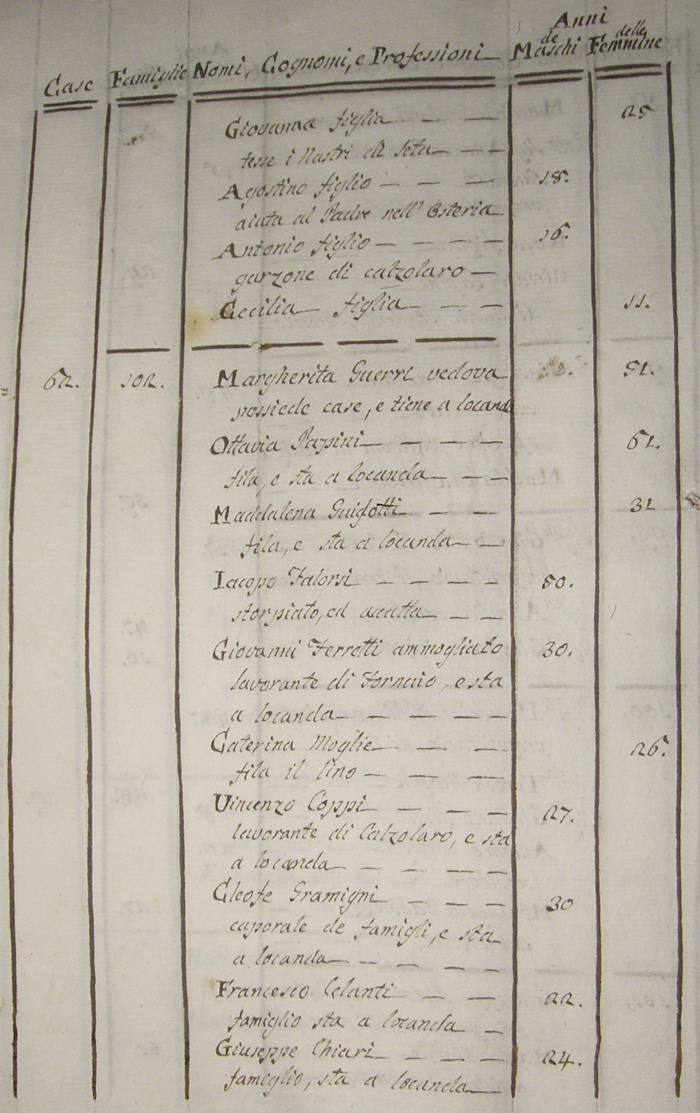 Anni
Case Famiglie Nomi, Cognomi, e Professioni de Maschi delle Femmine
Giovanna figlia 25
tesse i Nastri di Seta
Agostino figlio 18.
aiuta al Padre nell' Osteria
Antonio figlio 16.
garzone di calzolaro
Cecilia figlia 11.
62. 102. Margherita Guerri vedova 51.
possiede case, e tiene a locanda
Ottavia Papini 61.
fila, e sta a locanda
Maddalena Guidotti 31
fila, e sta a locanda
Iacopo Falorsi 50.
storpiato, ed accatta
Giovanni Ferretti ammogliato 30.
lavorante di Fornaio, e sta
a locanda
Caterina Moglie 26.
fila il lino
Vincenzo Coppi 27.
lavorante di Calzolaro, e sta
a locanda
Cleofe Gramigni 30
caporale de famigli, e sta
a locanda
Francesco Celanti 22.
famiglio sta a locanda
Giuseppe Chiari 24.
famiglio, sta a locanda